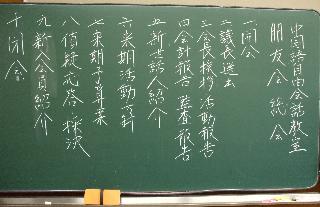 中国語自由会話教室
朋友会 総会
一 開会
二 議長選出
三 会長挨拶 活動報告
四 会計報告 監査報告
五 新世話人紹介
六 来期活動方針
七 来期予算案
八 質疑応答・採決
九 新入会員紹介
十 閉会